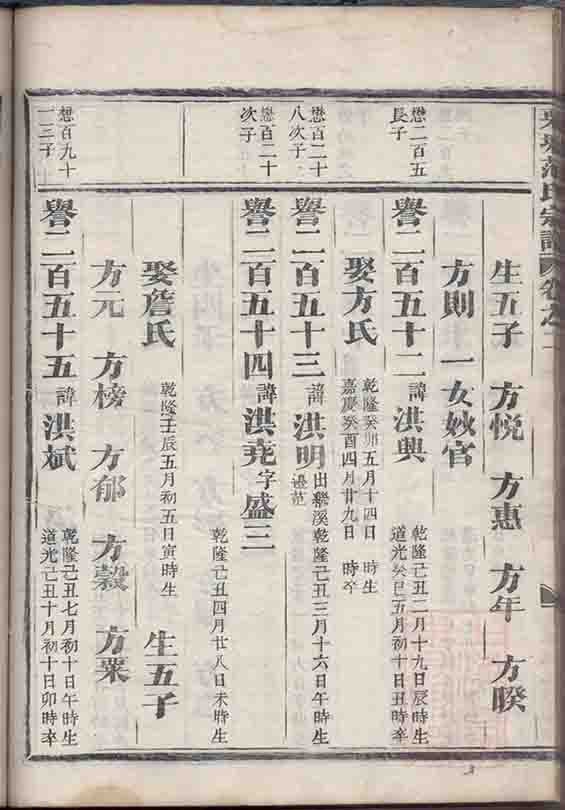 范氏宗譜 卷之
生五子 方悅 方惠 方年 方暌
方則 一女妙官
懋二百五
長子
譽二百五十二 諱洪興
乾隆己丑二月十九日辰時生
道光癸巳五月初十日丑時卒
娶方氏
乾隆癸卯五月十四日 時生
嘉慶癸酉四月廿九日 時卒
懋百二十
八次子
譽二百五十三 諱洪明
出繼溪
邊范
乾隆己丑三月十六日午時生
懋百二十
次子
譽二百五十四 諱洪尭字盛三
乾隆己丑四月廿八日未時生
娶詹氏 乾隆壬辰五月初五日寅時生 生五子
方元 方榜 方郁 方穀 方粟
懋百九十
一三子
譽二百五十五 諱洪斌
乾隆己丑七月初十日午時生
道光己丑十月初十日卯時卒